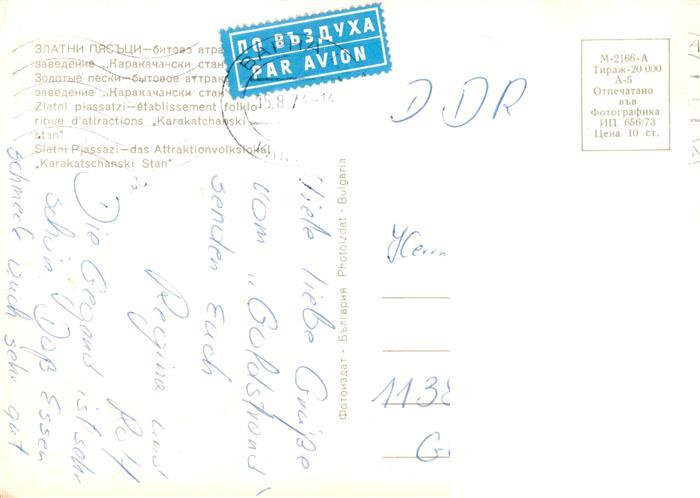 ЗЛАТНИ ПЯСЪЦИ—битово атра
заведение „Каракачански стан
Золотые пески—бытовое аттрак
заведение „Каракачански стан
Zlatni piassatzi—établissement folklo
rique d'attractions „Karakatchanski
stan"
Slatni Pjassazi—das Attraktionvolkslokal
„Karakatschanski Stan"
ПО ВЪЗДУХА
PAR AVION
ВАРНА
15.8.74-14
М-2166-А
Тираж-20 000
А-5
Отпечатано
във
Фотографика
ИП 656/73
Цена 10 ст.
DDR
Herrn
1138
Фотоиздат - България Photoizdat - Bulgaria
Viele liebe Grüße
vom „Goldstrand"
senden Euch
Regina und
Rolf
Die Gegend ist sehr
schön. Das Essen
schmeckt auch sehr gut